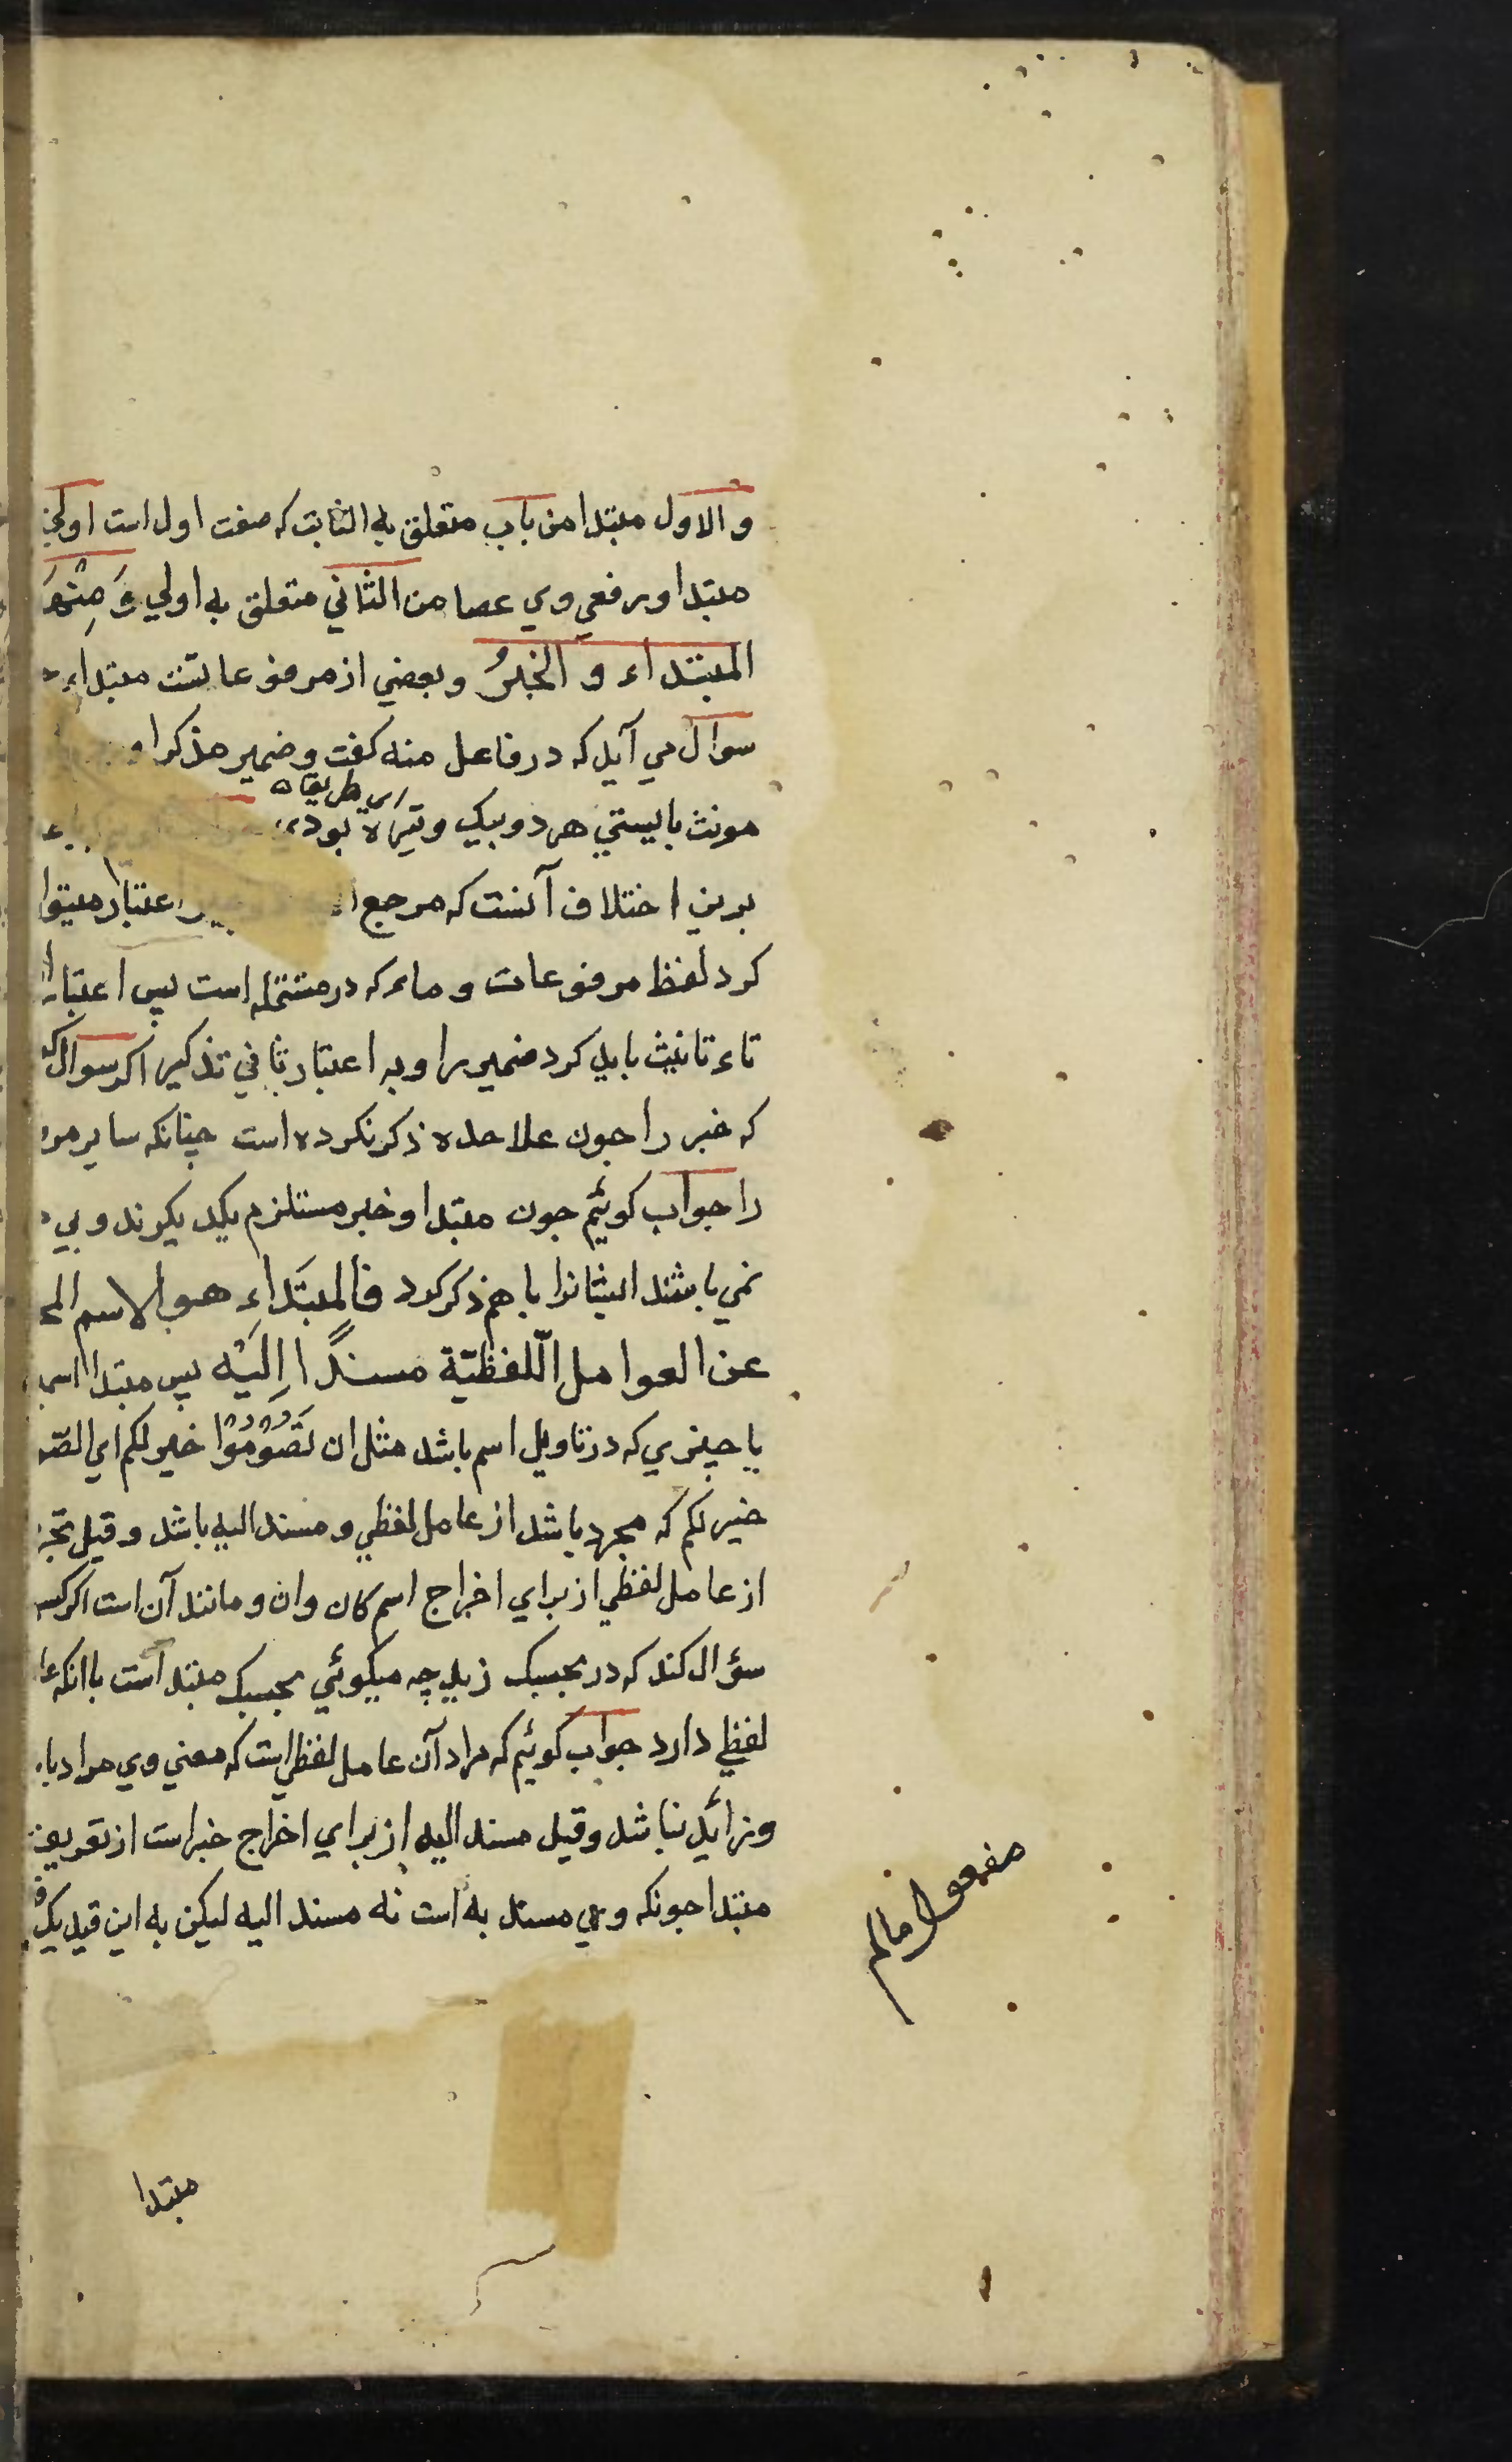 والاول مبتدا من باب متعلق به الثابت که صفت اول است اولي
مبتدا و رفعي وي عصا من الثاني متعلق به اولي وَ مِنْهَا
المبتداء و الخبرُ و بعضي از مرفوعاتست مبتداء
سوال مي آید که در فاعل منه کفت و ضمیر مذکر
اي طریقه
مونث بایستي هر دو بیک وتیره بودي
برین اختلاف آنست که مرجع اعتبار میتوا
کرد لفظ مرفوعات و ماء که در مشتمله است پس اعتبار
تاء تانیث باید کرد ضمیر را و به اعتبار ثاني تذکیر اکر سوال
که خبر را جون علاحده ذکر نکرده است جنانکه سایر مر
را جواب کوئیم جون مبتدا و خبر مستلزم یکدیکرند و بي
نمي باشند ایشانرا باهم ذکر کرد فالمبتَداءِ هو الاسم المج
عن العوامل الّلفظیّة مسندًا اِلَیْه پس مبتدا اسم
یا جیزي که در تاویل اسم باشد مثل ان تَصُوْمُوْا خیر لکم اي الصّو
خیر لکم که مجرد باشد از عامل لفظي و مسند الیه باشد و قید تجر
از عامل لفظي از براي اخراج اسم کان و ان و مانند آن است اکر کسي
سؤال کند که در بحسبک زید چه میکوئي بحسبک مبتدا است با انکه عا
لفظي دارد جواب کوئیم که مراد آن عامل لفظي است که معني وي مراد با
و زائد نباشد و قید مسند الیه از براي اخراج خبر است از تعریف
مبتدا جونکه وي مسند به است نه مسند الیه لیکن به این قید یک
مفعول مالم
مبتدا